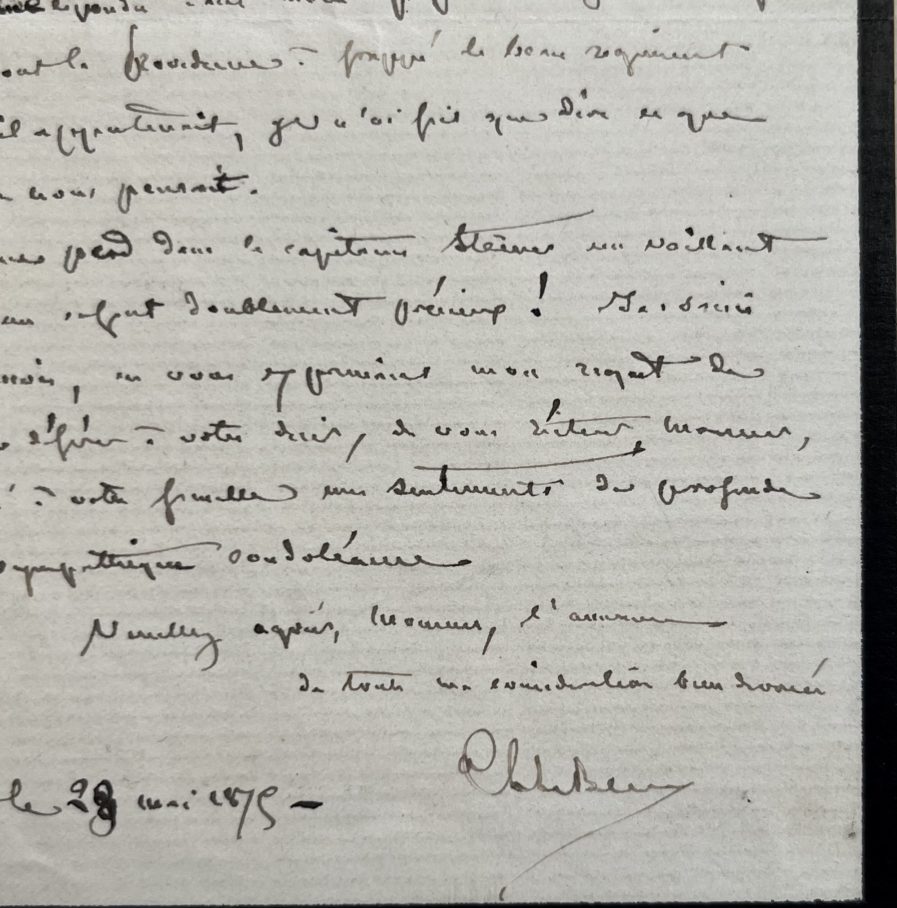 dont la Providence a frappé le beau régiment
il appartenait, je n'ai fait que dire ce que
nous pensait.
perd dans le capitaine un vaillant
un enfant doublement précieux !
moi, en vous exprimant mon regret de
à votre désir, de vous Monsieur,
à votre famille mes sentiments de profonde
sympathique condoléance
Veuillez agréer, Monsieur, l'assurance
de toute ma considération bien
le 28 mai 1875 -